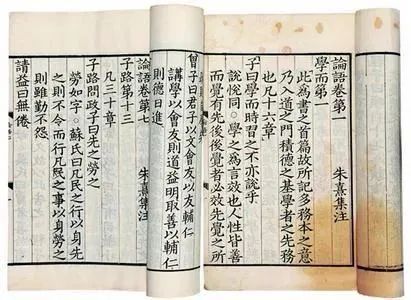 論語卷第一 朱熹集注
學而第一
此為書之首篇故所記多務本之意
乃入道之門積德之基學者之先務
也凡十六章
子曰學而時習之不亦說乎
說悅同○學之為言效也人性皆善
而覺有先後後覺者必效先覺之所
曾子曰君子以文會友以友輔仁
講學以會友則道益明取善以輔仁
則德日進
論語卷第七 朱熹集注
子路第十三
凡三十章
子路問政子曰先之勞之
勞如字○蘇氏曰凡民之行以身先
之則不令而行凡民之事以身勞之
則雖勤不怨
請益曰無倦